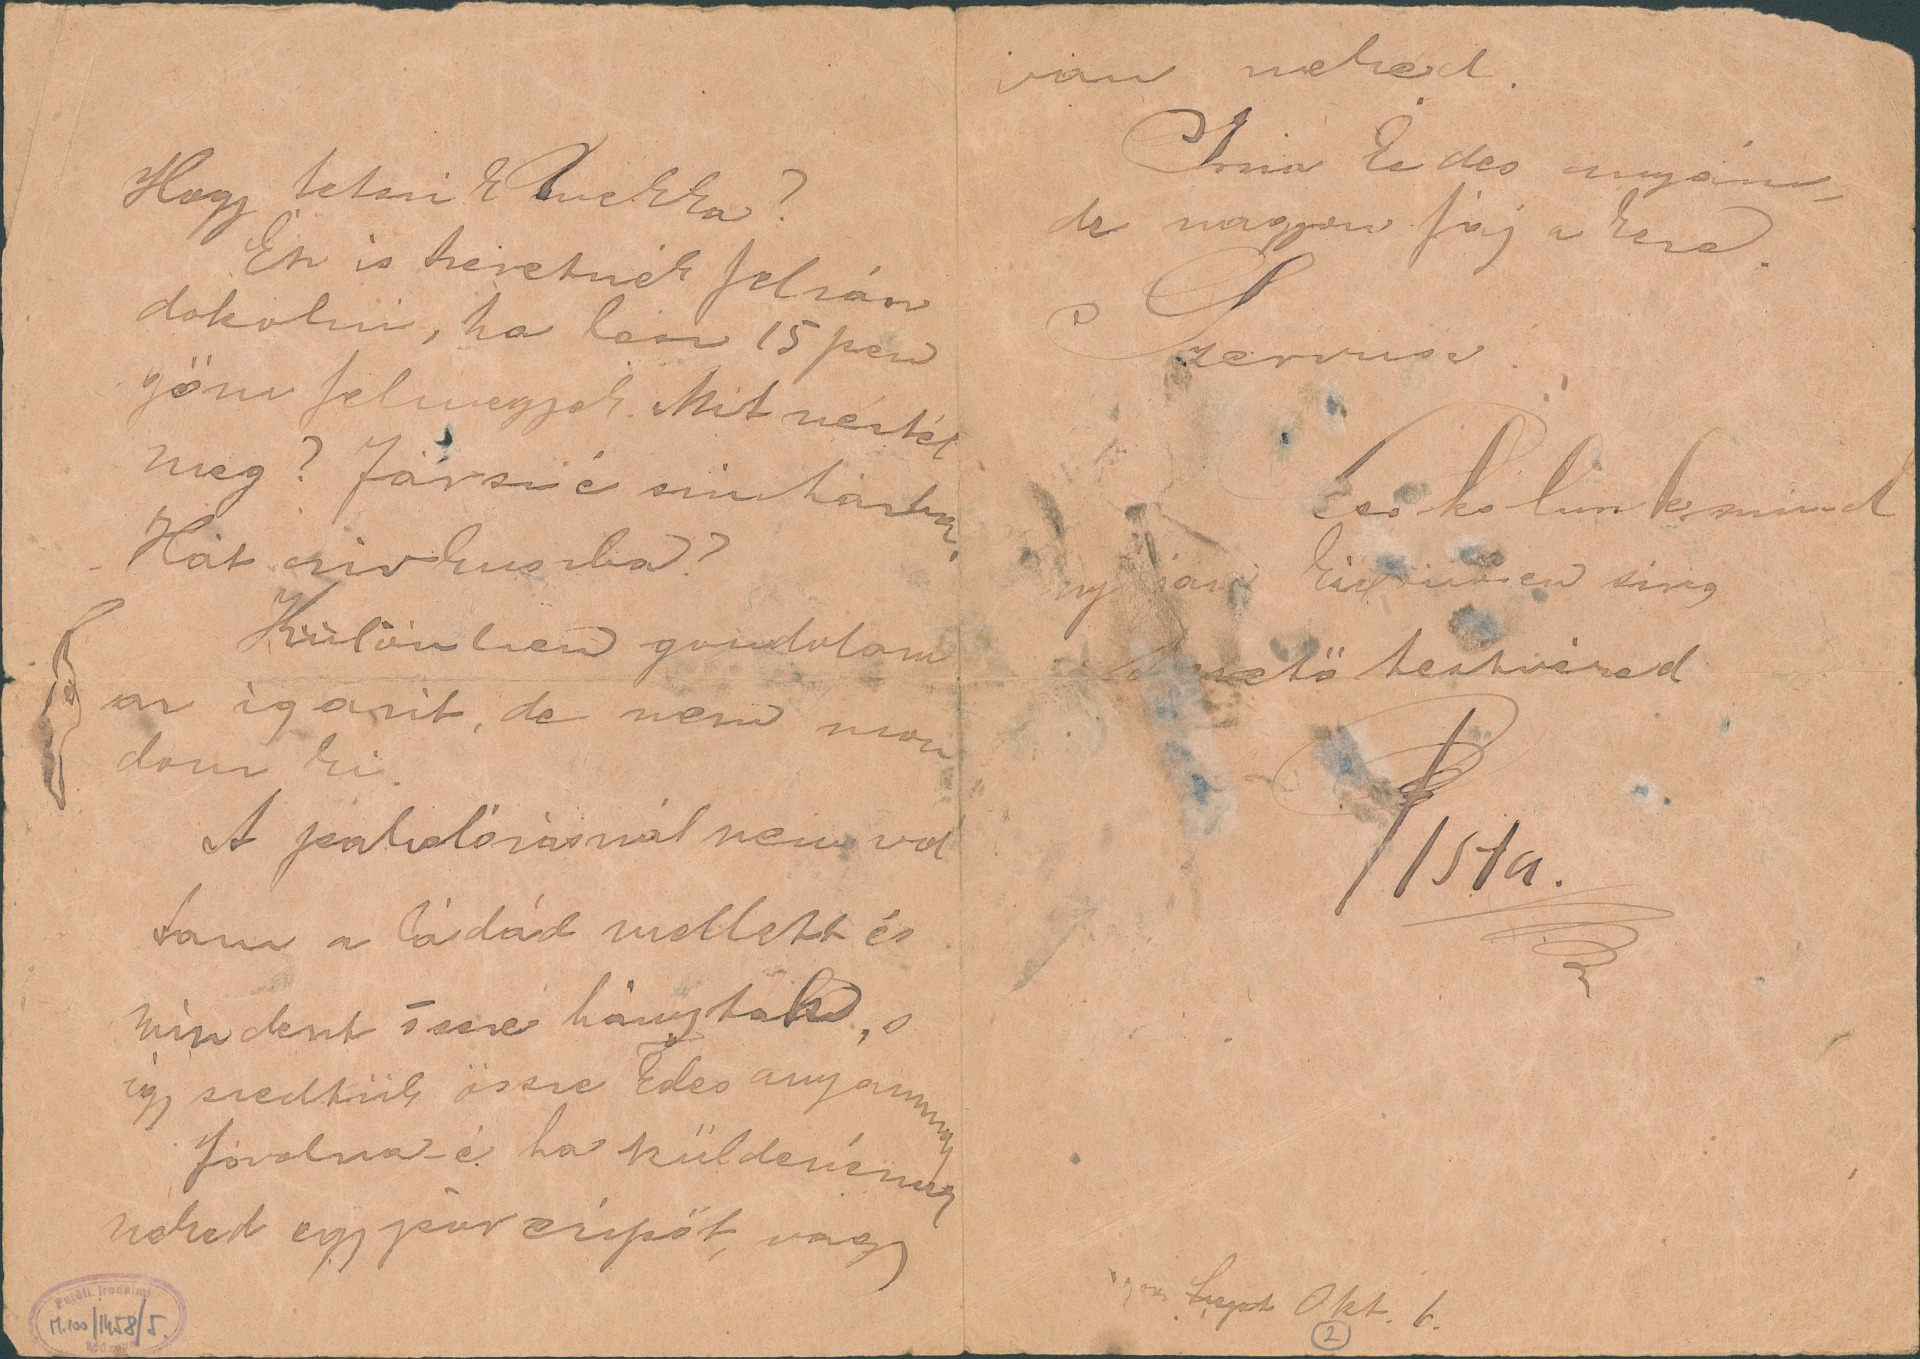 Hogy tetszik Puckka?
Én is szeretnék felrán
dokolni, ha lesz 15 pen
gőm felmegyek. Mit néztél
meg? Jársz é szinházba,
Hát czirkuszba?
Különben gondolom
az igazit, de nem mon
dom ki.
A patkolóriásnál nem vol
tam a ládád mellett és
mindent össze hánytak, s
úgy szedtük össze Édes anyámmal
Jó volna-é ha küldenénk
neked egy pár czipőt, vagy
van neked.
Irma Édes anyám,
de nagyon fáj a keze.
Szervusz
Csókolunk mind
nyájan különösen
szerető testvéred
Pista.
Szept Okt. 6.
2
Petőfi Irodalmi
M.100/1458/5.
Múzeum